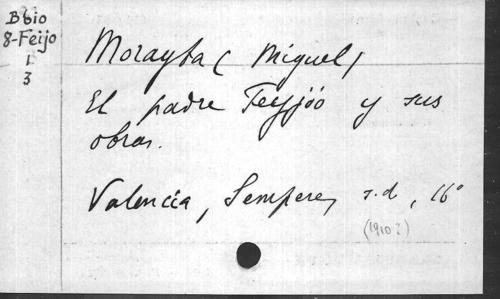 Bbio
8-Feijo
1
3
Morayta (Miguel)
El padre Feyjóo y sus
obras.
Valencia, Sempere, s.d, 16°
(1910?)